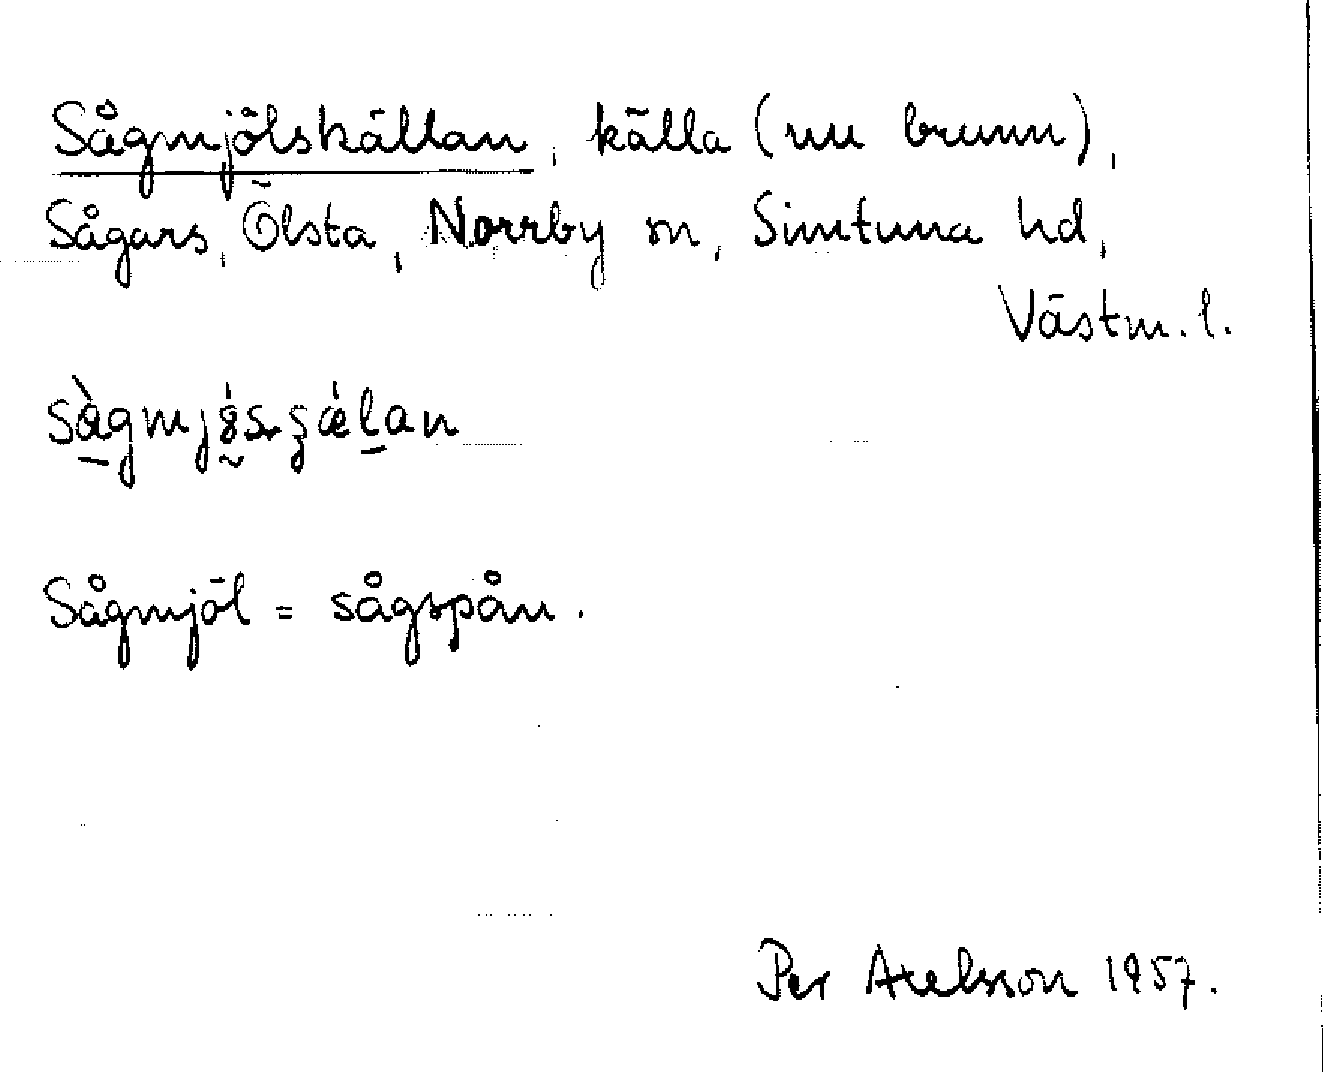 Sågmjölskällan, källa (nu brunn),
Sågars, Ölsta, Norrby sn, Simtuna hd,
Västm. l.
Sågmjöl = sågspån.
Per Axelsson 1957.